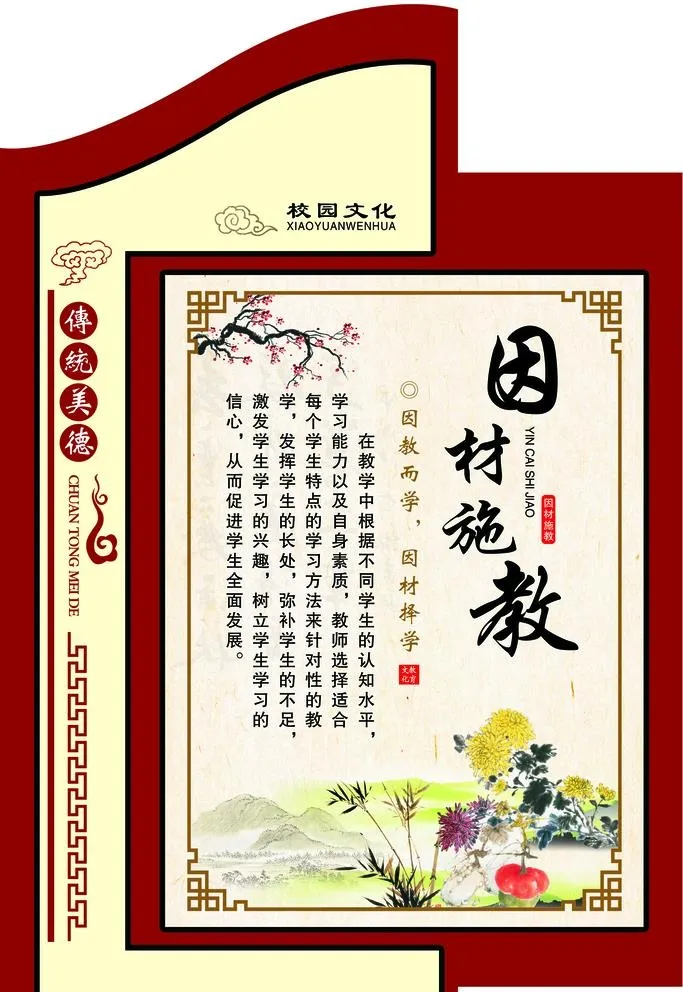 校园文化
XIAOYUANWENHUA
傳統美德
CHUAN TONG MEI DE
因材施教
YIN CAI SHI JIAO
因材施教
◎因教而学，因材择学
教育文化
在教学中根据不同学生的认知水平，
学习能力以及自身素质，教师选择适合
每个学生特点的学习方法来针对性的教
学，发挥学生的长处，弥补学生的不足，
激发学生学习的兴趣，树立学生学习的
信心，从而促进学生全面发展。